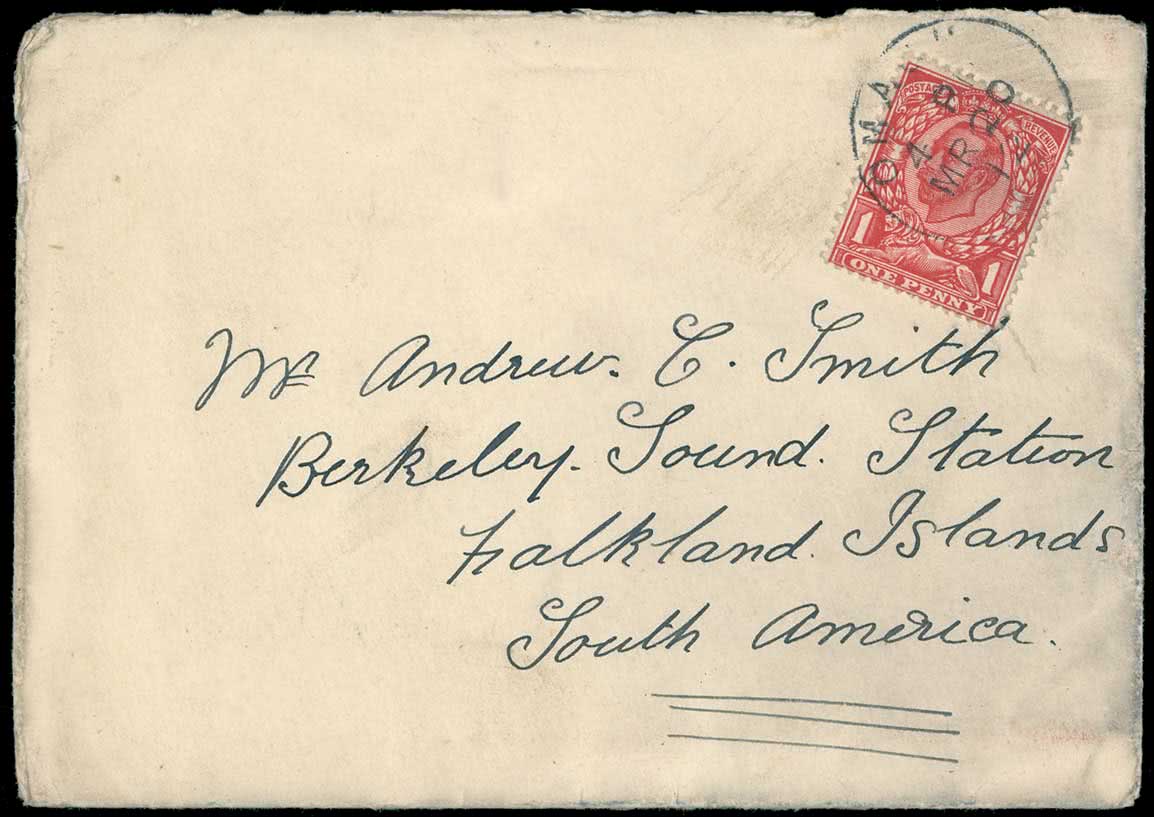 POSTAGE REVENUE
MR 20
12
1 1
ONE PENNY
Mr Andrew. C. Smith
Berkeley. Sound. Station
Falkland. Islands
South America.